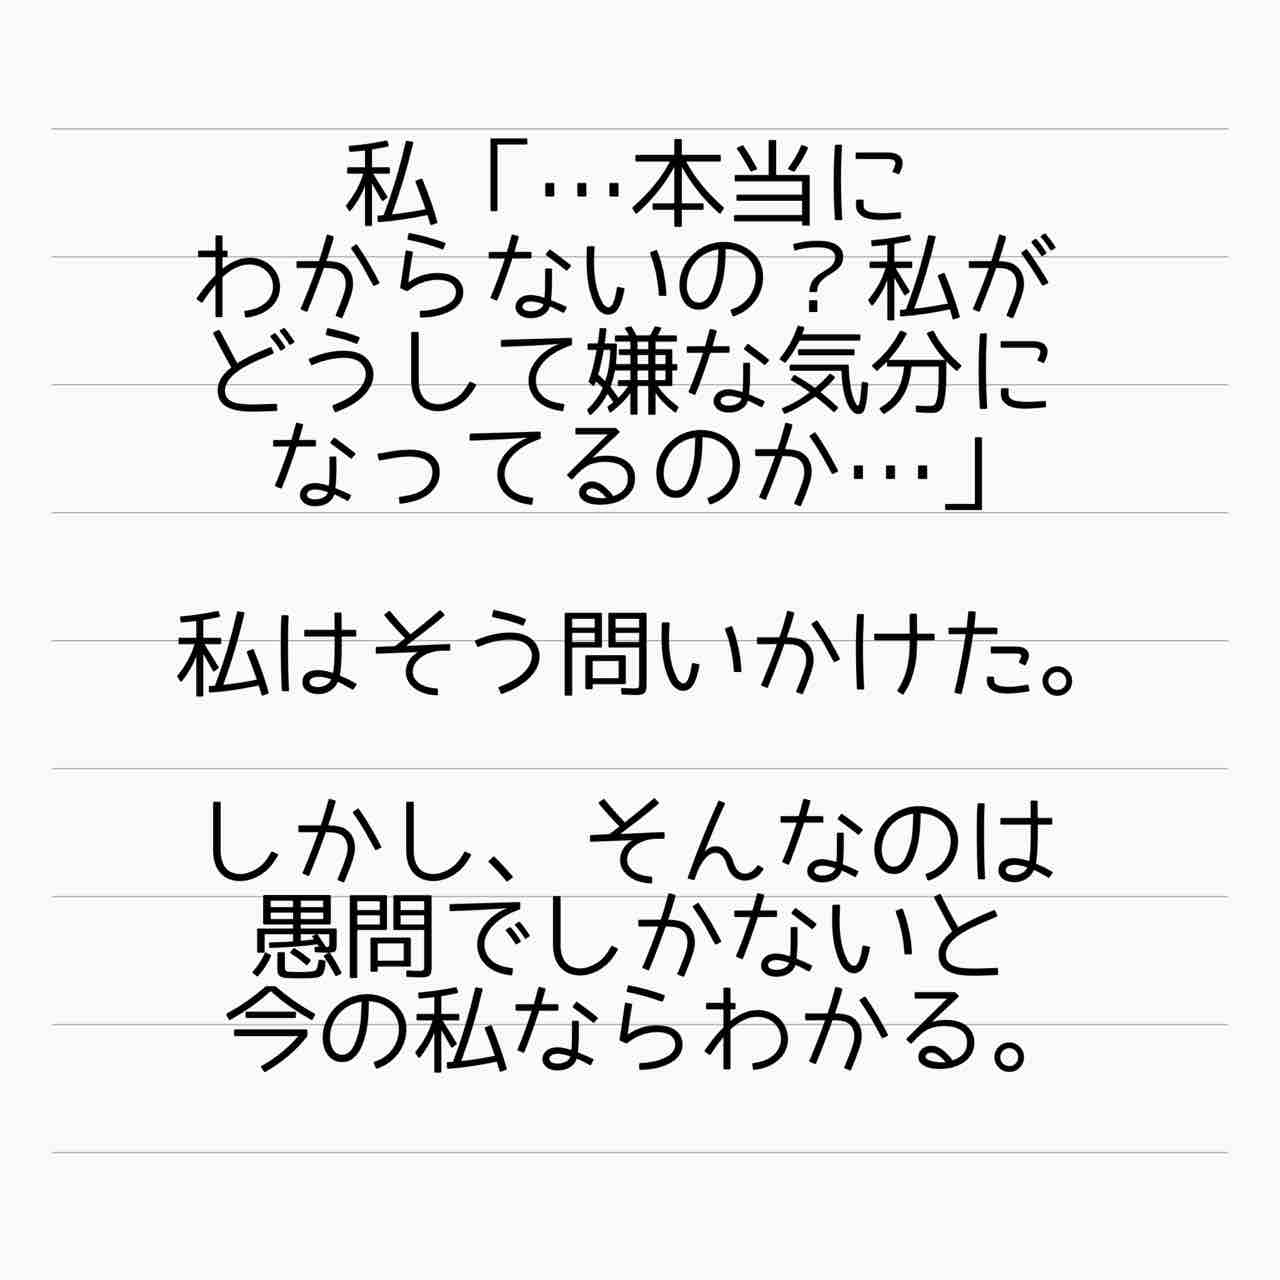 私「…本当に
わからないの？私が
どうして嫌な気分に
なってるのか…」
私はそう問いかけた。
しかし、そんなのは
愚問でしかないと
今の私ならわかる。